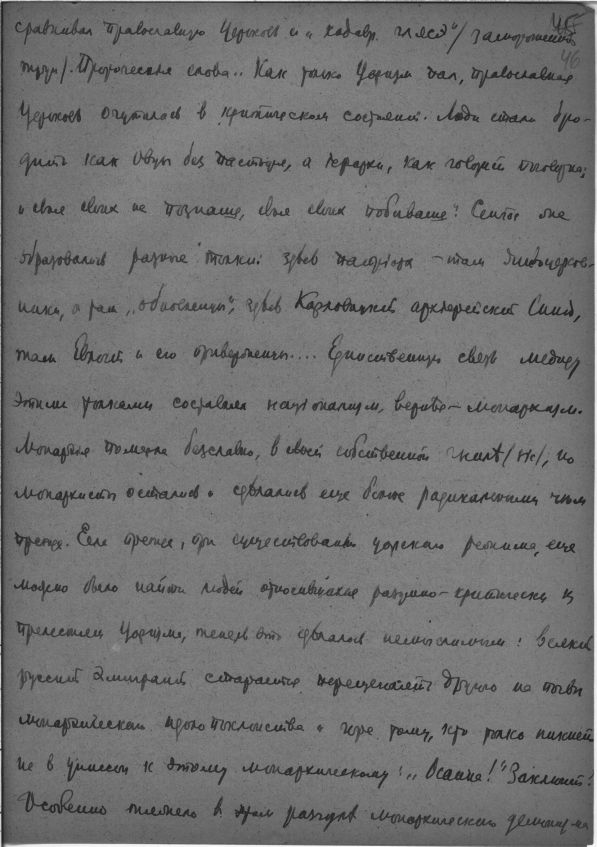 46
сравнивал православную Церковь и „кадавр гляcэ"/замороженный
труп/. Пророческия слова.. Как только Царизм пал, православная
Церковь очутилась в критическом состоянии. Люди стали бро-
дить как овцы без пастыря, а иерархи, как говорит поговорка;
"и своя своих не познаша, своя своих побиваша". Сейчас же
образовались разные толки: здесь патриарх - там живоцерков-
ники, а там „обновленцы", здесь Карловацкий архиерейский Синод,
там Евлогий и его приверженцы.... Единственную связь между
этими толками составлял национализм, вернее - монархизм.
Монархия померла безславно, в своей собственной гнили, но
монархисты остались и сделались еще более радикальными чем
прежде. Если прежде, при существовании царскаго режима, еще
можно было найти людей относившихся разумно-критически к
прелестям Царизма, теперь это сделалось немыслимым: всякий
русский эмигрант старается перещеголять другого на почве
монархическаго идолопоклонства и горе тому, кто только пикнет
не в унисон к этому монархическому: „Осанна!" Заклюют!
Особенно тяжело в этом разгуле монархическаго демонизма